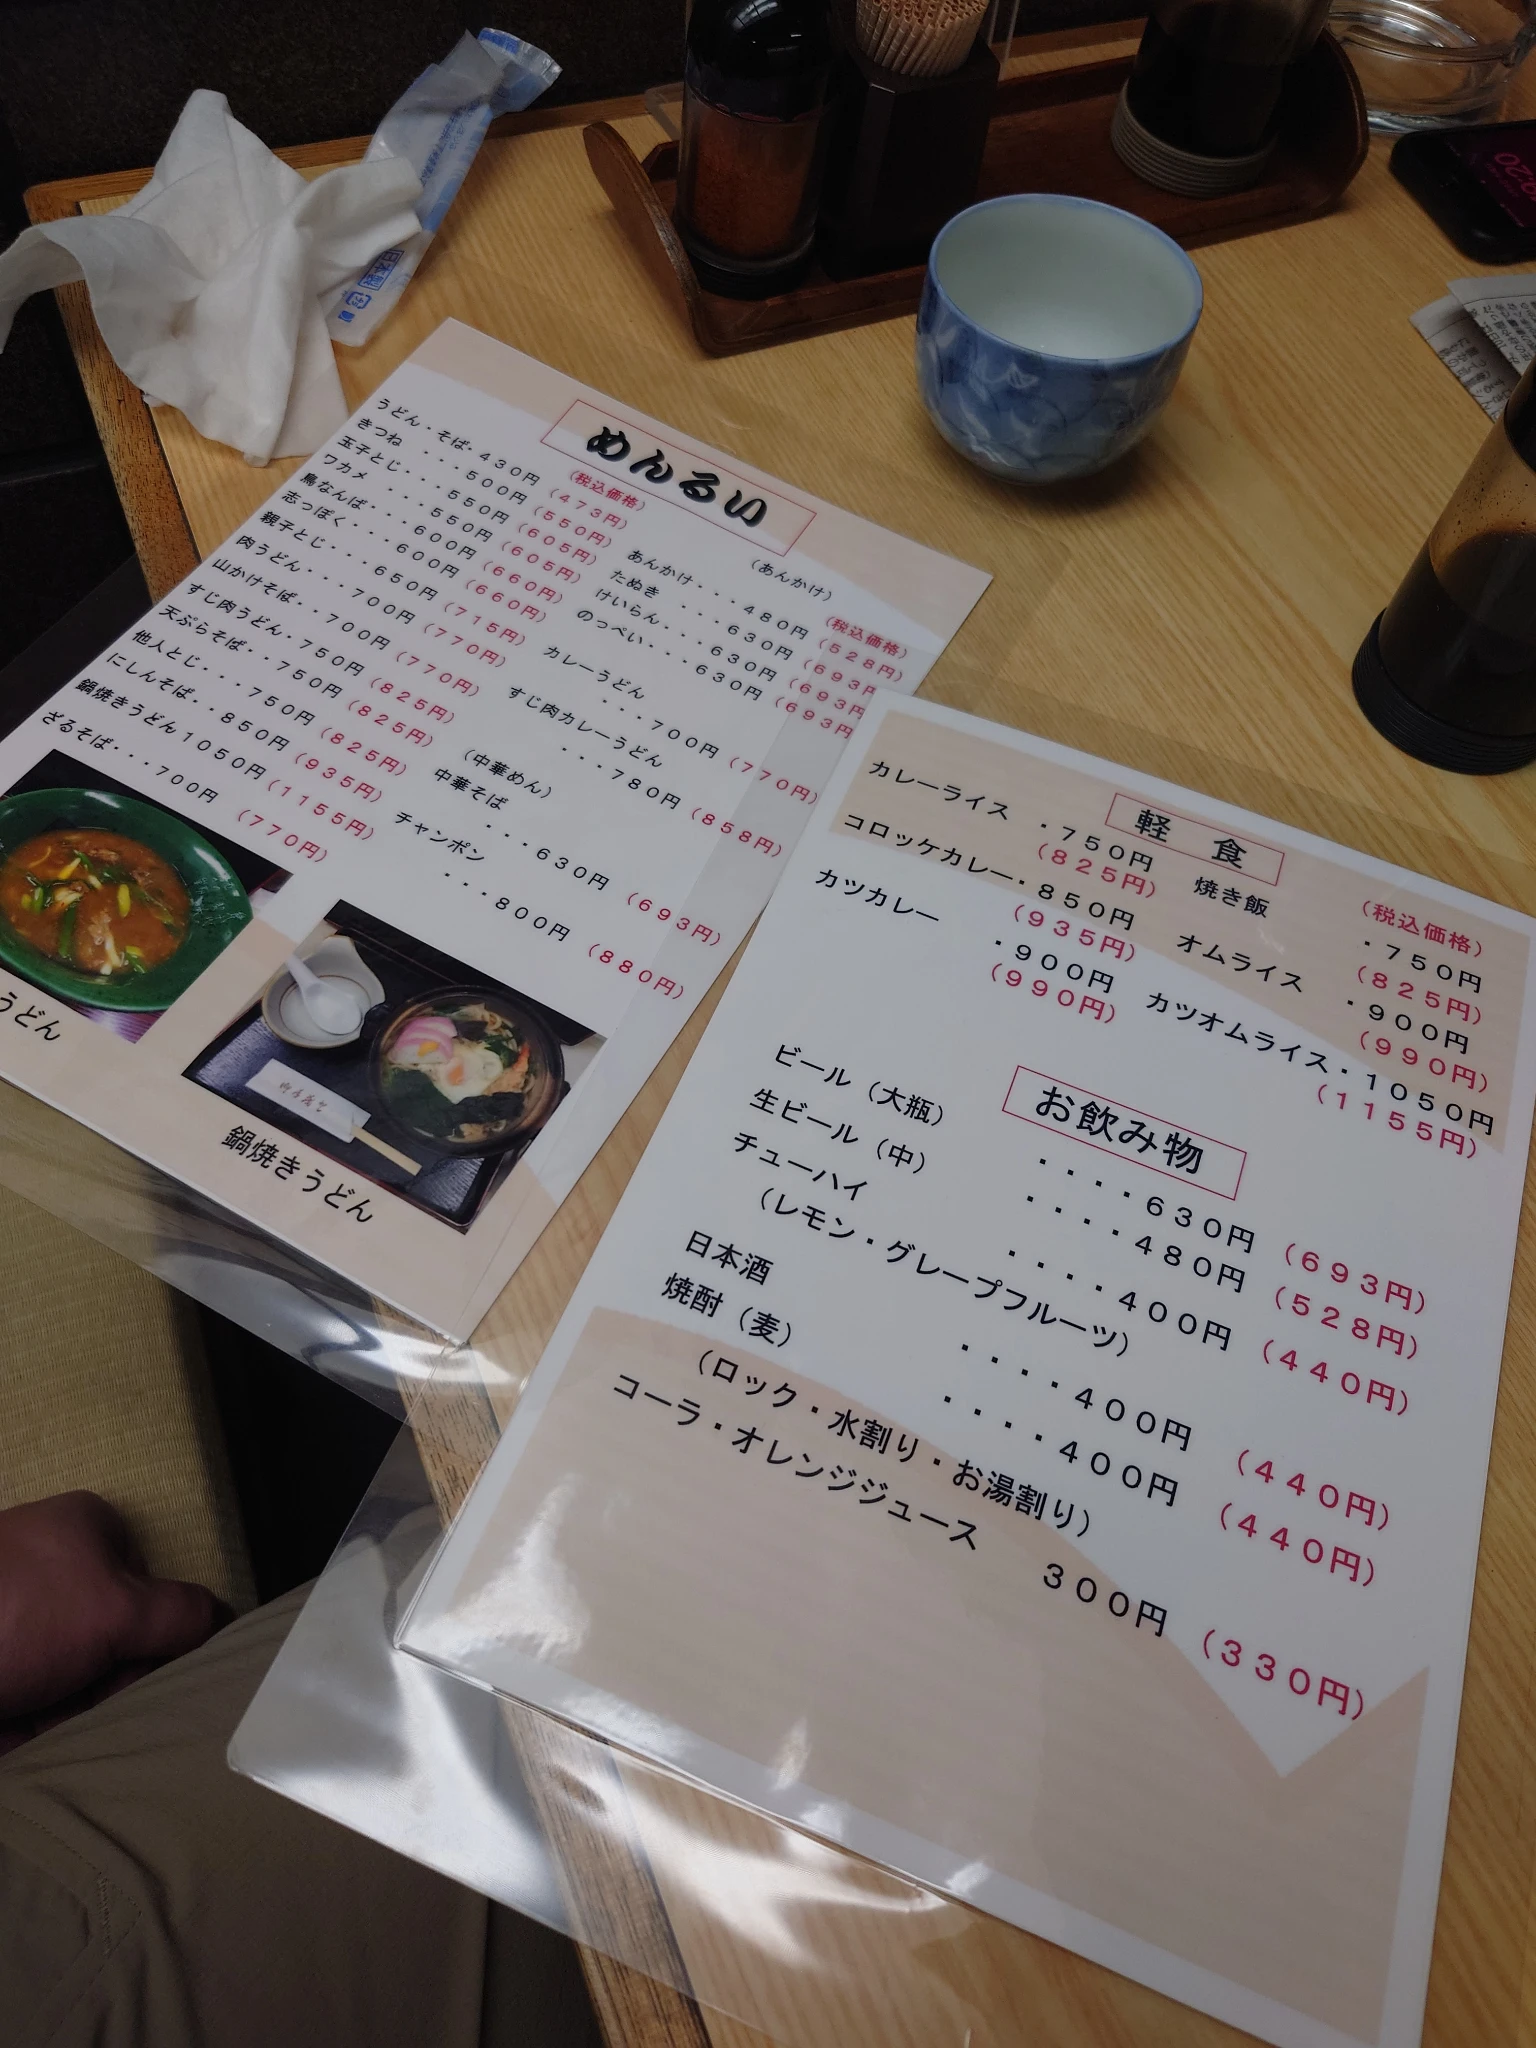 めんるい
(税込価格)
うどん・そば・430円 (473円)
きつね ・・・500円 (550円)
玉子とじ・・・550円 (605円)
ワカメ ・・・550円 (605円)
鳥なんば・・・600円 (660円)
志っぽく・・・600円 (660円)
親子とじ・・・650円 (715円)
肉うどん・・・700円 (770円)
山かけそば・・700円 (770円)
すじ肉うどん・750円 (825円)
天ぷらそば・・750円 (825円)
他人とじ・・・750円 (825円)
にしんそば・・850円 (935円)
鍋焼きうどん1050円 (1155円)
ざるそば・・・700円 (770円)
(あんかけ)
(税込価格)
あんかけ・・・480円 (528円)
たぬき ・・・630円 (693円
けいらん・・・630円 (693円
のっぺい・・・630円 (693円
カレーうどん
・・・700円 (770円)
すじ肉カレーうどん
・・・780円 (858円)
(中華めん)
中華そば
・・・630円 (693円)
チャンポン
・・・800円 (880円)
うどん
鍋焼きうどん
軽 食
(税込価格)
カレーライス ・750円
(825円)
コロッケカレー・850円
(935円)
カツカレー ・900円
(990円)
焼き飯 ・750円
(825円)
オムライス ・900円
(990円)
カツオムライス・1050円
(1155円)
お飲み物
ビール(大瓶) ・・・・630円 (693円)
生ビール(中) ・・・・480円 (528円)
チューハイ ・・・・400円 (440円)
(レモン・グレープフルーツ)
日本酒 ・・・・400円 (440円)
焼酎(麦) ・・・・400円 (440円)
(ロック・水割り・お湯割り)
コーラ・オレンジジュース 300円 (330円)
日本製